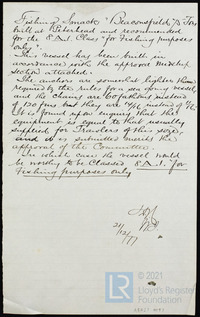 Fishing Smack "Beaconsfield" 75 Tons
built at Birkenhead and recommended
for the 8 A.1. Class "for Fishing purposes
only".
This vessel has been built in
accordance with the approved Midship
Section attached.
The anchors are somewhat lighter than
required by the rules for a sea going vessel
and the chains are 60 fathoms instead
of 120 fms but they are 14/16 instead of 12/16
It is found upon enquiry that the
equipment is equal to that usually
supplied for Trawlers of this size,
and it is submitted merits the
approval of the Committee.
In which case the vessel would
be worthy to be Classed 8 A.1. for
Fishing purposes only
21/12/77
© 2021
Lloyd's Register
Foundation